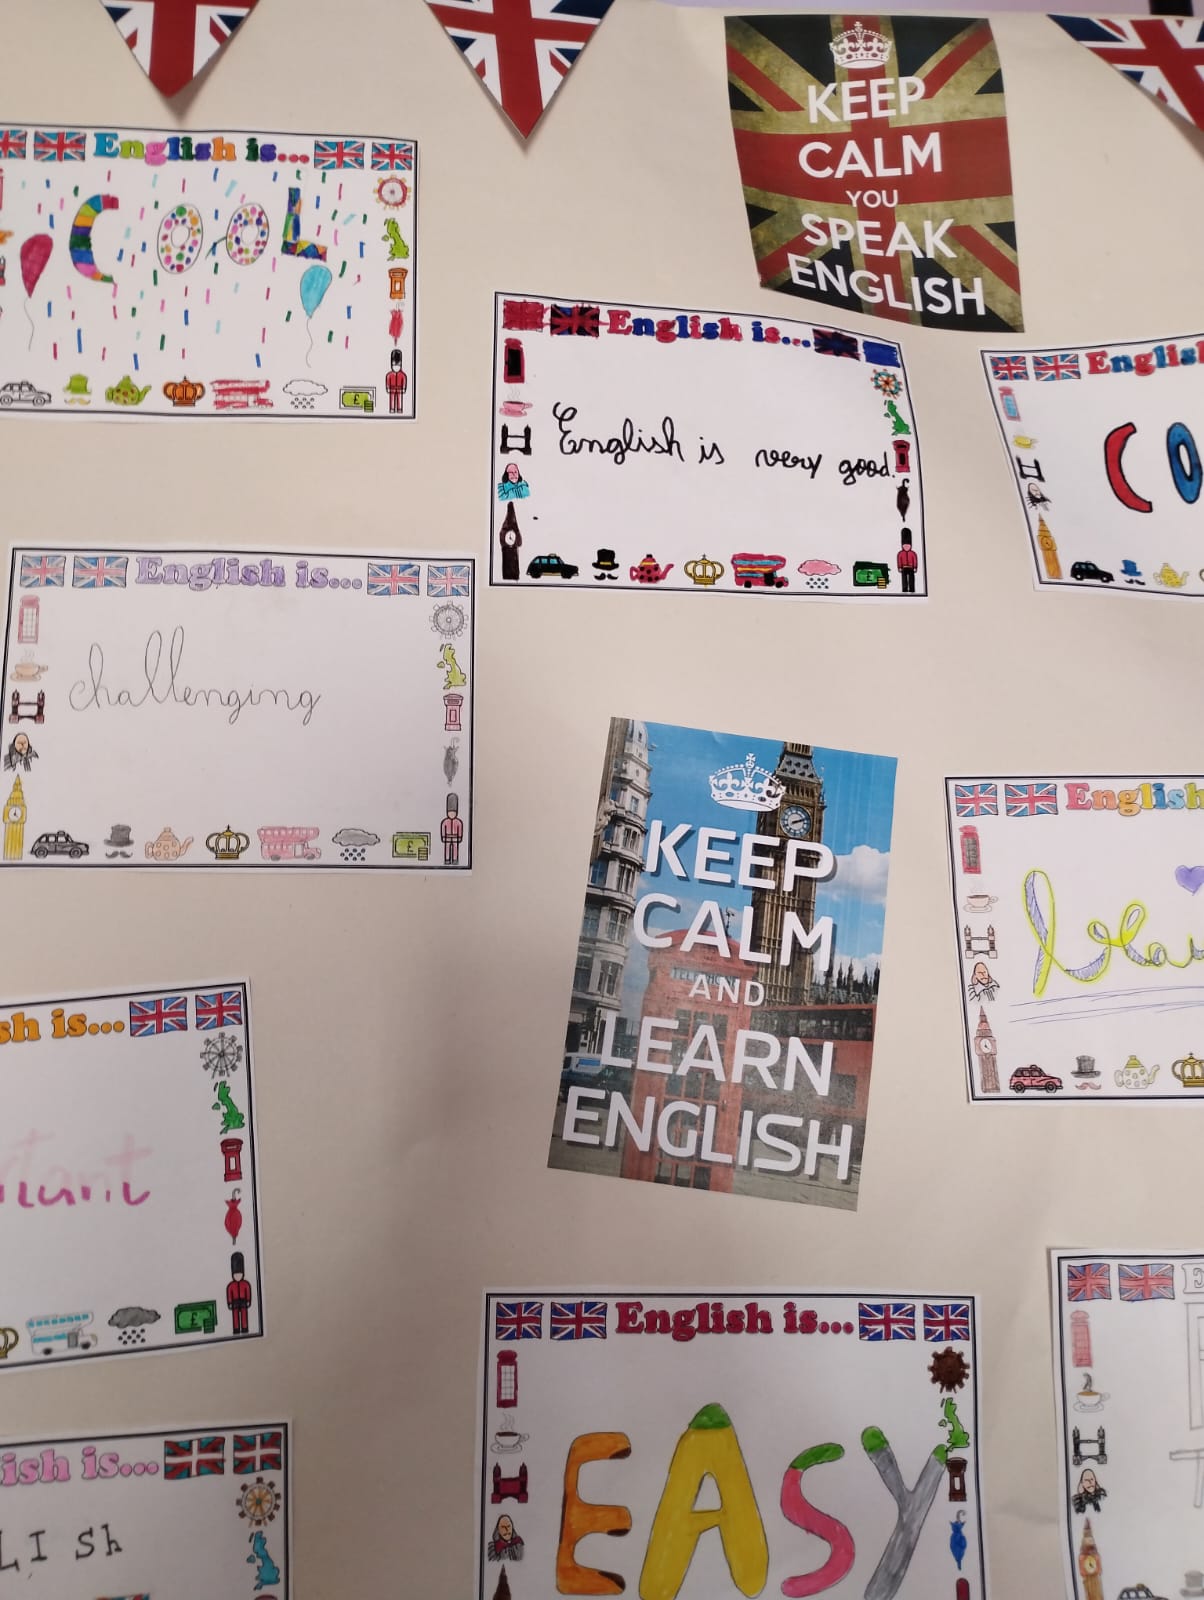 KEEP
CALM
YOU
SPEAK
ENGLISH
English is...
COOL
English is...
English is very good.
English
CO
English is...
challenging
KEEP
CALM
AND
LEARN
ENGLISH
English
sh is...
English is...
EASY
ish is...
LISh